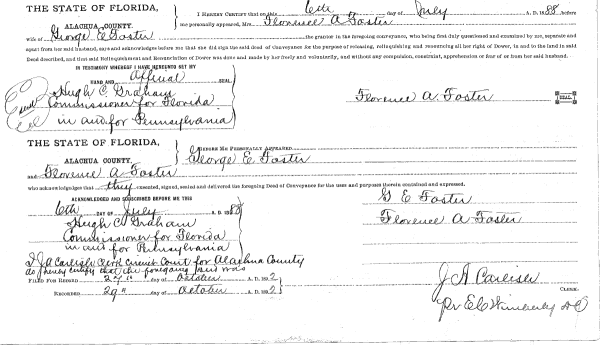 THE STATE OF FLORIDA,
ALACHUA COUNTY.
I HEREBY CERTIFY that on this 6th day of July A. D. 1888, before
me personally appeared, Mrs. Florence A Foster
wife of George E Foster the grantor in the foregoing conveyance, who being first duly questioned and examined by me, separate and
apart from her said husband, says and acknowledges before me that she did sign the said deed of Conveyance for the purpose of releasing, relinquishing and renouncing all her right of Dower, in and to the land in said
Deed described, and that said Relinquishment and Renunciation of Dower was done and made by her freely and voluntarily, and without any compulsion, constraint, apprehension or fear of or from her said husband.
IN TESTIMONY WHEREOF I HAVE HEREUNTO SET MY
HAND AND Official SEAL
Hugh C. Graham
Commissioner for Florida
in and for Pennsylvania
Florence A. Foster SEAL
THE STATE OF FLORIDA,
ALACHUA COUNTY,
BEFORE ME PERSONALLY APPEARED
George E Foster
and Florence A Foster
who acknowledges that they executed, signed, sealed and delivered the foregoing Deed of Conveyance for the uses and purposes therein contained and expressed.
ACKNOWLEDGED AND SUBSCRIBED BEFORE ME THIS
6th DAY OF July A. D. 188
Hugh C. Graham
Commissioner for Florida
in and for Pennsylvania
G E Foster
Florence A Foster
I J A Carlisle Clerk Circuit Court for Alachua County
do hereby certify that the foregoing Deed was
FILED FOR RECORD 29" day of October A. D. 1892
RECORDED 29" day of October A. D. 1892
J A Carlisle
CLERK.
pr E C Wimberly D C